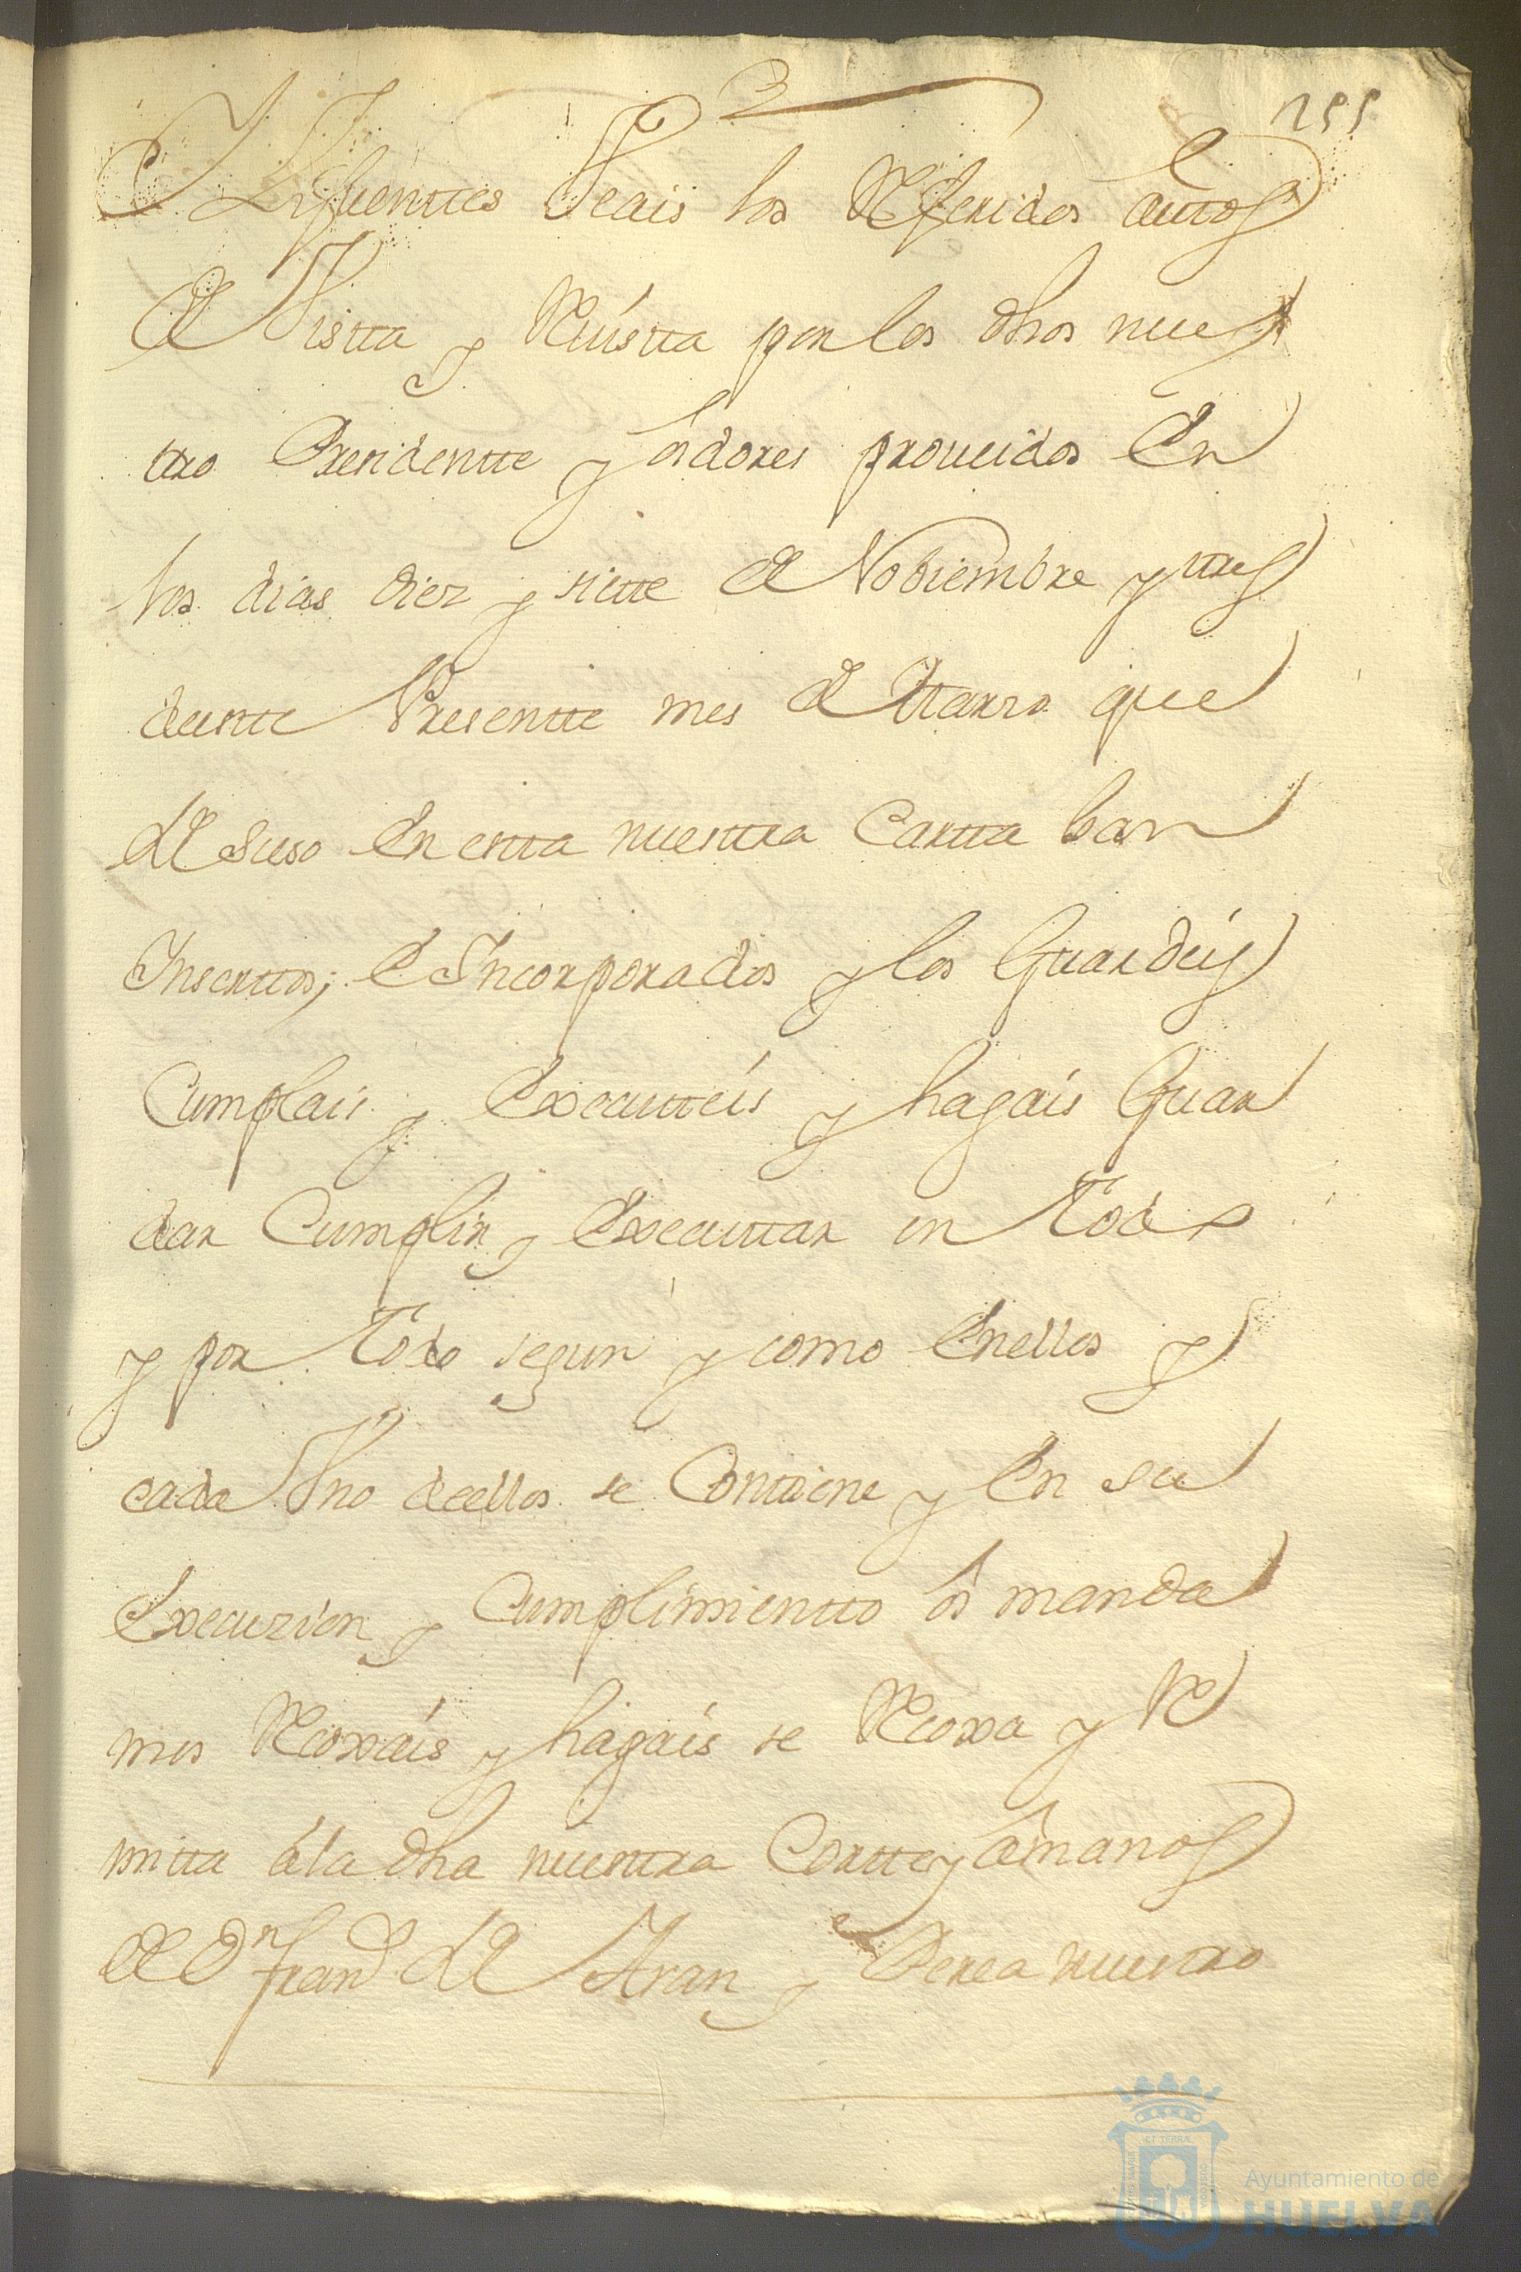 255
Zifuenttes Veais los Referidos autos
de Vistta y Revistta por los dhos nues
tro Presidentte y oidores proueidos en
los dias diez y siette de Nobiembre y tres
deeste Presentte mes de Marzo que
de suso en estta nuesttra Cartta ban
Inserttos; e Incorporados y los Guardeis
Cumplais y executteis y hagais Guar
dar Cumplir y executtar en todo
y por todo segun y como enellos y
cada Vno deellos se Conttiene y en su
execuzion y Cumplimientto os manda
mos Recoxais y hagais se Recoxa y Re
mitta á la dha nuesttra Cortte y á manos
de Dn Franco de Aran y Perea nuestro
Ayuntamiento de
HUELVA